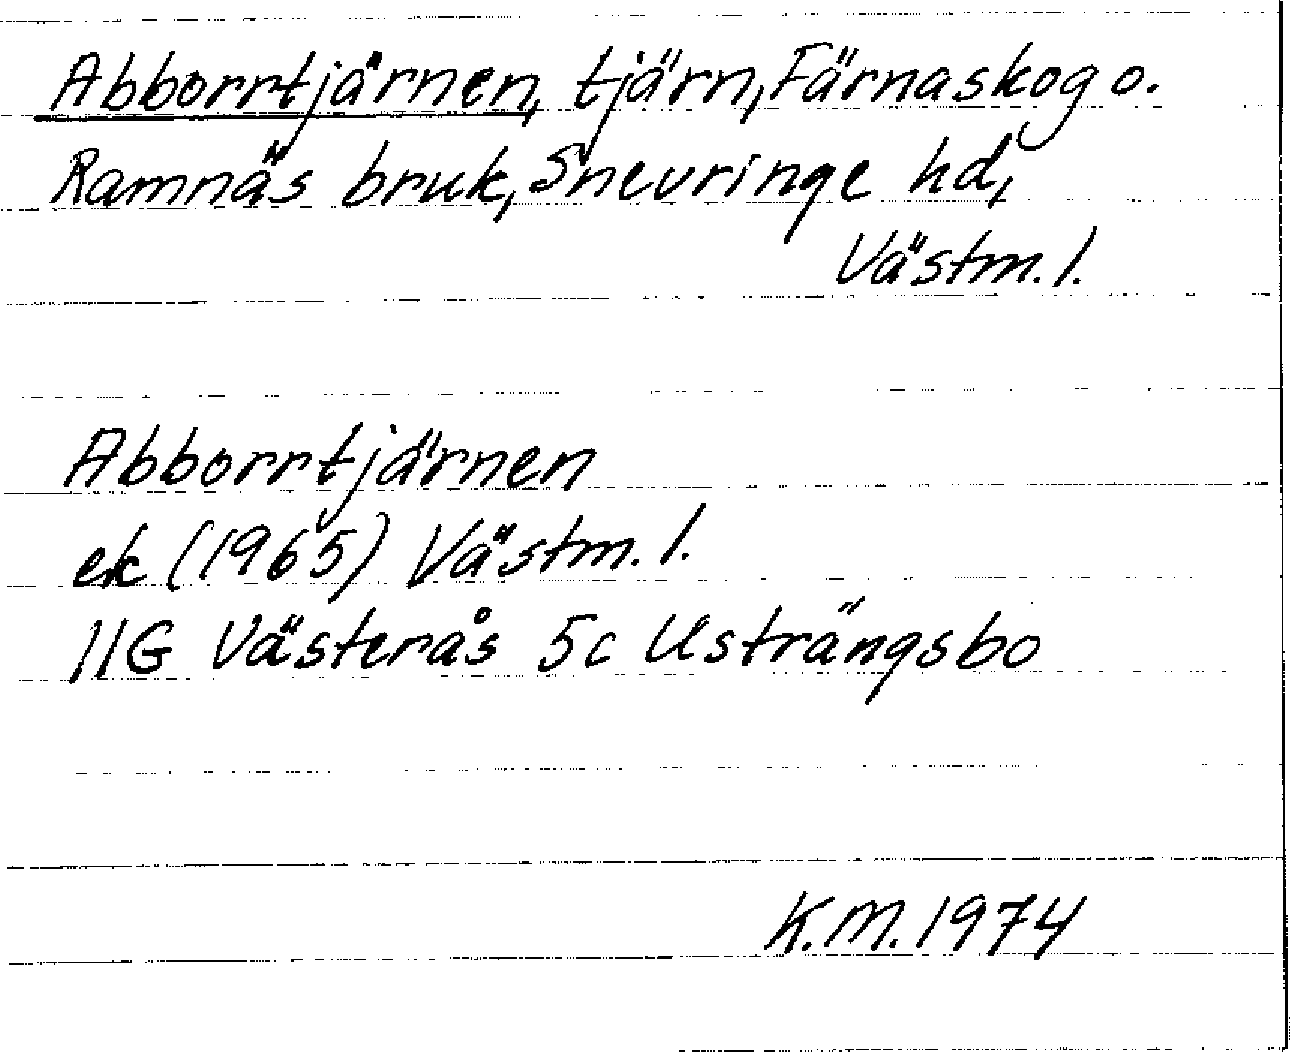 Abborrtjärnen, tjärn, Färnaskog o.
Ramnäs bruk, Snevringe hd,
Västm. l.
Abborrtjärnen
ek (1965) Västm. l.
11G Västerås 5c Usträngsbo
K.M. 1974